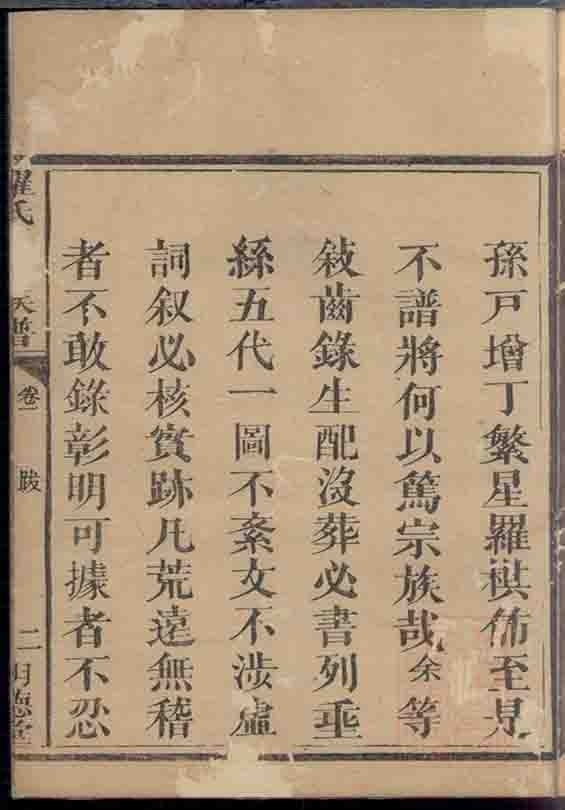 孫戸增丁繁星羅棋佈至見
不譜將何以篤宗族哉余等
敍齒錄生配沒葬必書列乖
絲五代一圖不紊文不涉虛
詞叙必核實跡凡荒遠無稽
者不敢錄彰明可據者不忍
羅氏
族譜
卷一
跋
二
明德堂